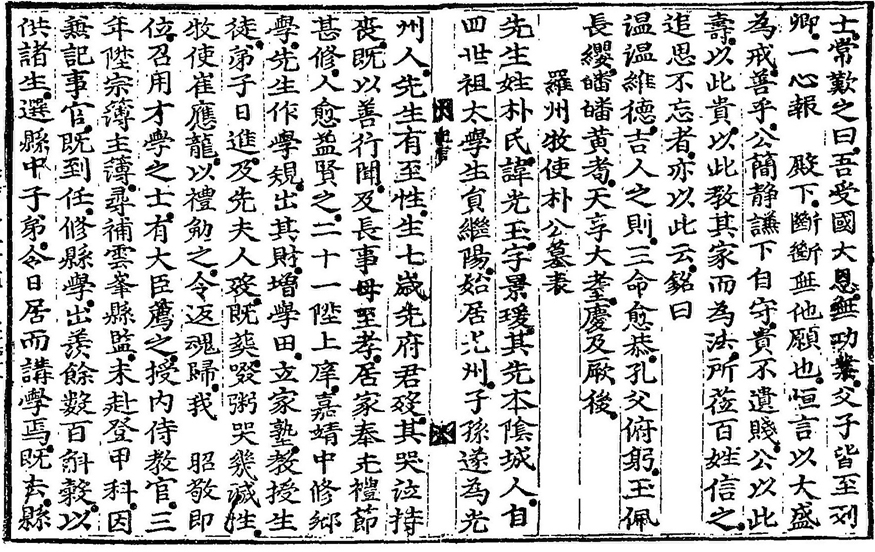 士常歎之曰吾受國大恩無功業父子皆至列
卿一心報　殿下斷斷無他願也恒言以大盛
為戒善乎公簡静謙下自守貴不遺賤公以此
壽以此貴以此教其家而為法所莅百姓信之
追思不忘者亦以此云銘曰
温温維德吉人之則三命愈恭孔父俯躬玉佩
長纓皤皤黄耈天享大耋慶及厥後
羅州牧使朴公墓表
先生姓朴氏諱光玉字景瑗其先本陰城人自
四世祖太學生貟繼陽始居光州子孫遂為光
州人先生有至性生七歲先府君歿其哭泣持
喪既以善行聞及長事母至孝居家奉先禮節
甚修人愈益賢之二十一陞上庠嘉靖中修鄉
學先生作學規出其財增學田立家塾教授生
徒弟子日進及先夫人歿既葬啜粥哭幾滅性
牧使崔應龍以禮勉之令返魂歸我　昭敬即
位召用才學之士有大臣薦之授内侍教官三
年陞宗簿主簿尋補雲峯縣監未赴登甲科因
兼記事官既到任修縣學出羡餘數百斛穀以
供諸生選縣中子弟令日居而講學焉既去縣